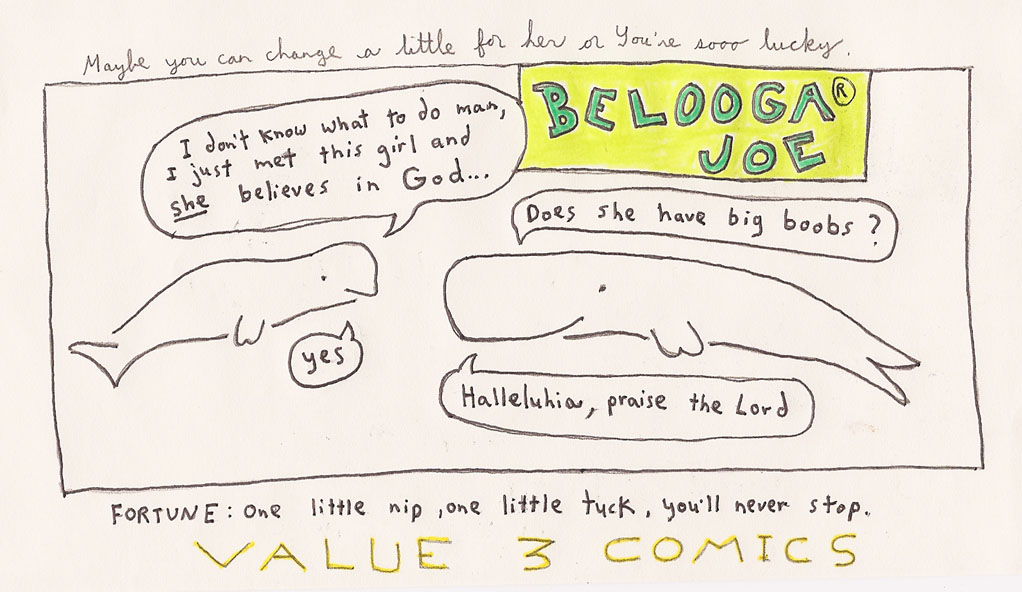 Maybe you can change a little for her or You're sooo lucky.
BELOOGA®
JOE
I don't know what to do man,
I just met this girl and
she believes in God...
Does she have big boobs?
yes
Halleluhia, praise the Lord
FORTUNE: One little nip, one little tuck, you'll never stop.
VALUE 3 COMICS